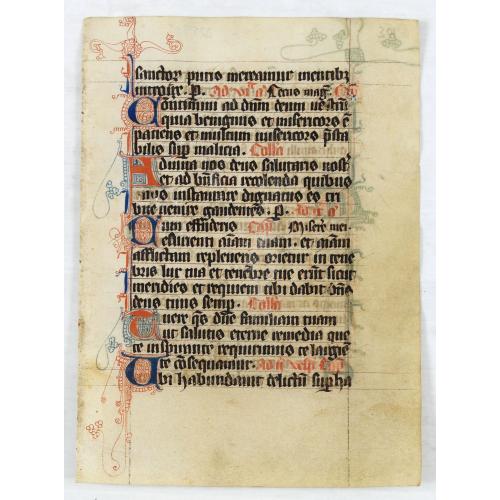 sanctor puris mereamur mentibz
introire. p. Ad vi a Deus mag.
Convertimini ad dnm deum vestrum
quia benignus et misericors e
patiens et multum misericors psta
bilis sup malicia. Colla
Adiuva nos deus salutaris nost
et ad bnficia recolenda quibus
nos instaurare dignatus es tri
bue venire gaudentes. p.
Cum effuderis Misere mei
esurienti aiam tuam. et aiam
afflictam repleveris orietur in tene
bris lux tua et tenebre tue erut sicut
meridies et requiem tibi dabit dns
deus tuus semp. Colla
Tuere qs dne familiam tuam
ut salutis eterne remedia que
te inspirante requirimus te largie
te cosequamur.
Ubi habundavit delictu supha